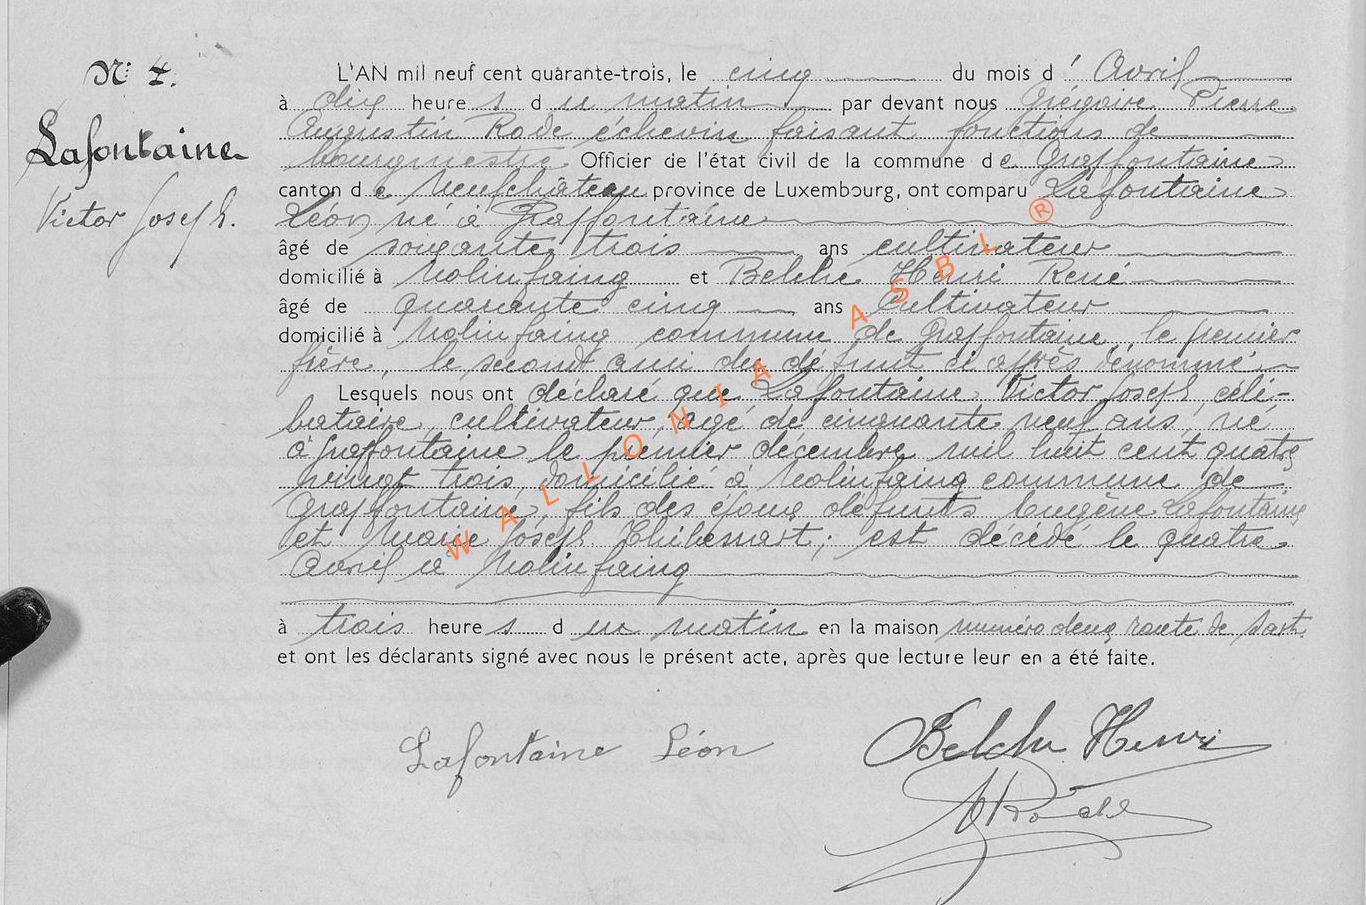 N° 4.
Lafontaine
Victor Joseph.
L'AN mil neuf cent quarante-trois, le cinq du mois d' Avril
à dix heure s d u matin par devant nous Grégoire Pierre
Augustin Rode échevin faisant fonctions de
bourgmestre Officier de l'état civil de la commune d e Grapfontaine
canton d e Neufchâteau province de Luxembourg, ont comparu Lafontaine
Léon né à Grapfontaine
âgé de soixante trois ans cultivateur
domicilié à Nolinfaing et Belche Henri René
âgé de quarante cinq ans Cultivateur
domicilié à Nolinfaing commune de Grapfontaine, le premier
frère, le second ami du défunt ci après dénommé
Lesquels nous ont déclaré que Lafontaine Victor Joseph, céli-
bataire, cultivateur, agé de cinquante neuf ans, né
à Grapfontaine le premier décembre mil huit cent quatre
vingt trois, domicilié à Nolinfaing commune de
Grapfontaine, fils des époux défunts Eugène Lafontaine
et Marie Joseph Thibessart; est décédé le quatre
Avril à Nolinfaing
à trois heure s d u matin en la maison numéro deux route de Sart
et ont les déclarants signé avec nous le présent acte, après que lecture leur en a été faite.
Lafontaine Léon
Belche Henri
WALLONIA ASBL ®